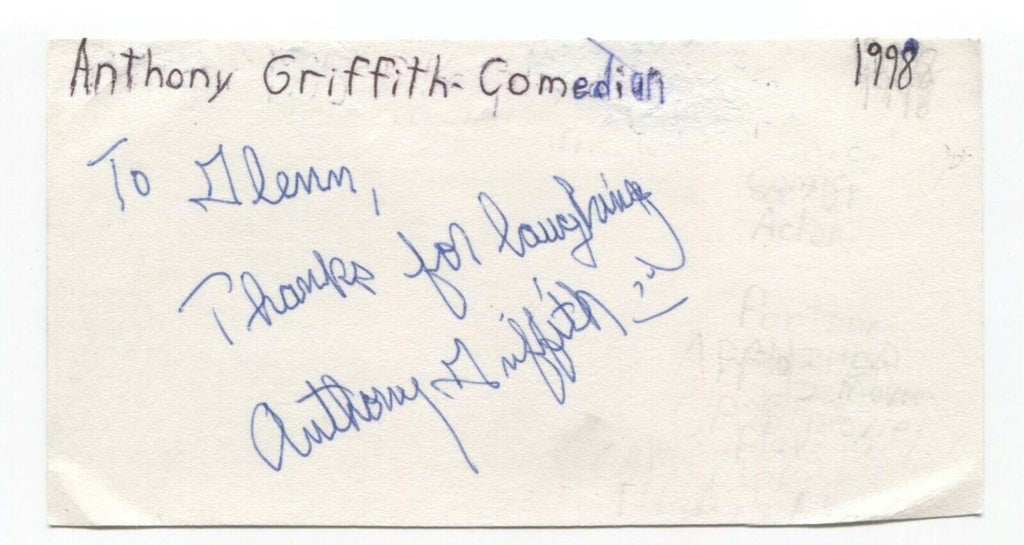 Anthony Griffith- Comedian 1998
To Glenn,
Thanks for laughing
Anthony Griffith